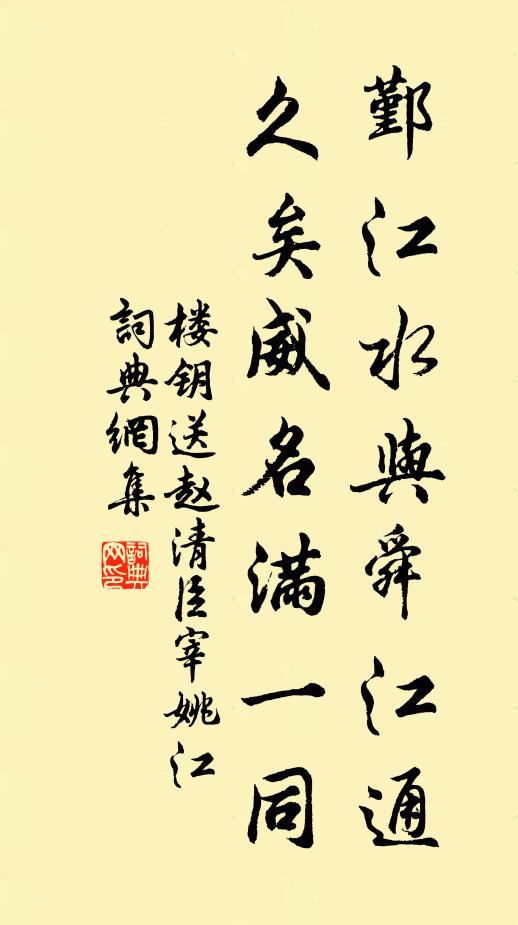 鄞江水與舜江通
久矣威名滿一同
楼钥送赵清臣宰姚江
詞典網集
詞典
网印